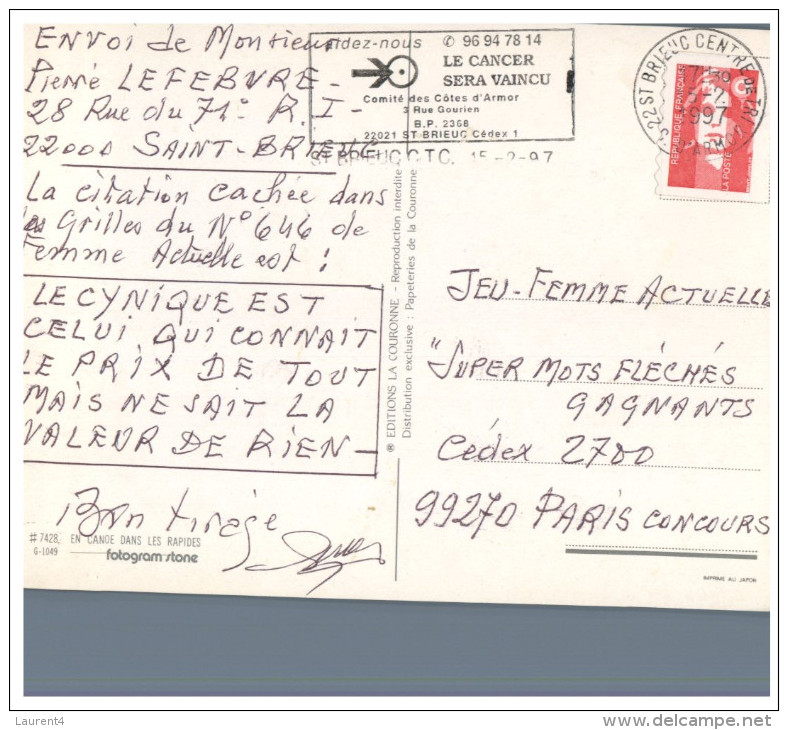 ENVOI de Monsieur
Pierre LEFEBVRE -
28 Rue du 71e R.I -
22000 SAINT-BRIEUC
La citation cachée dans
les Grilles du N° 646 de
Femme Actuelle est :
LE CYNIQUE EST
CELUI QUI CONNAIT
LE PRIX DE TOUT
MAIS NE SAIT LA
VALEUR DE RIEN -
Bon tirage
#7428, EN CANOE DANS LES RAPIDES
G-1049
fotogram-stone
aidez-nous
✆ 96 94 78 14
LE CANCER
SERA VAINCU
Comité des Côtes d'Armor
3 Rue Gourien
B.P. 2368
22021 ST BRIEUC Cédex 1
ST BRIEUC C.T.C. 15-2-97
22 ST BRIEUC CENTRE DE TRI
ARMOR
RÉPUBLIQUE FRANÇAISE
LA POSTE
® EDITIONS LA COURONNE - Reproduction interdite
Distribution exclusive : Papeteries de la Couronne
JEU-FEMME ACTUELLE
"SUPER MOTS FLÉCHÉS
GAGNANTS
Cédex 2700
99270 PARIS CONCOURS
IMPRIME AU JAPON
Laurent4
www.delcampe.net